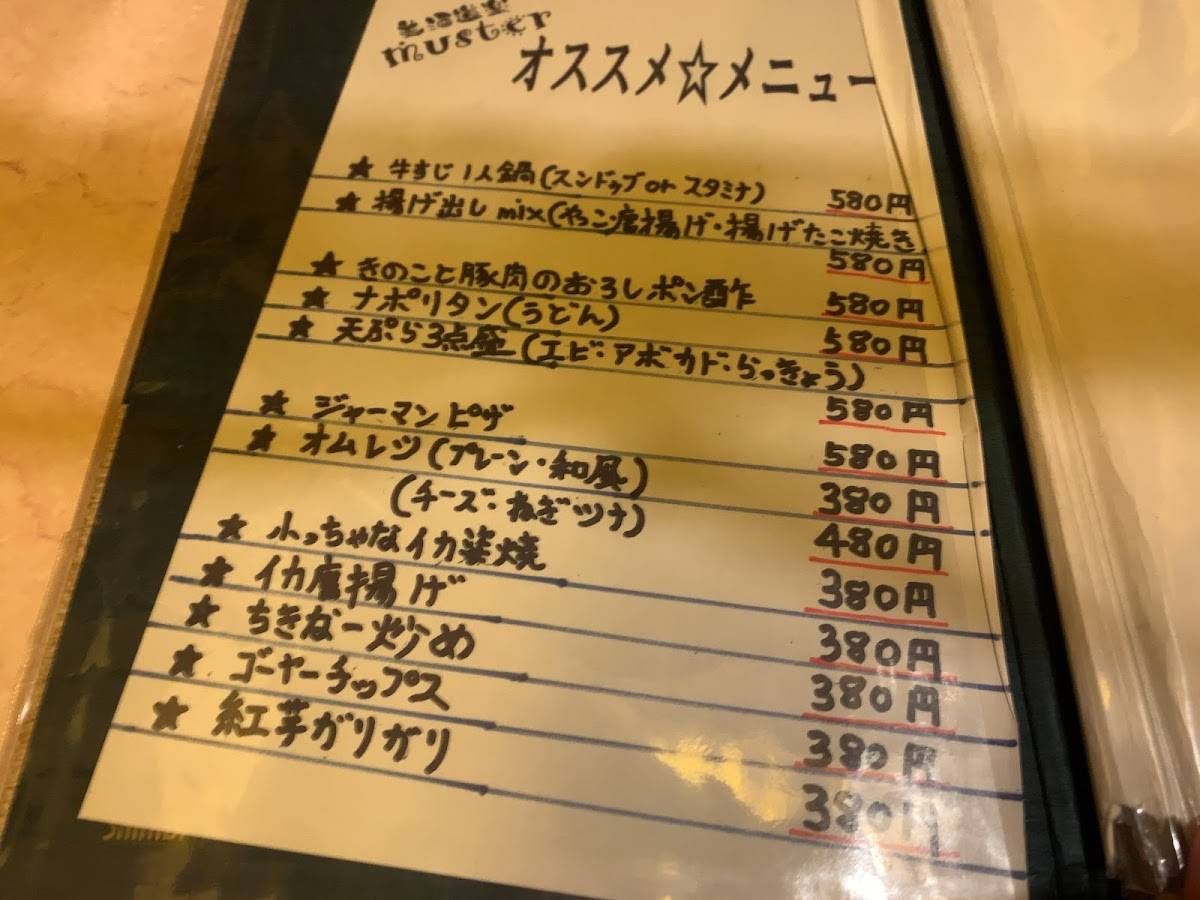 muster
オススメ☆メニュー
★ 牛すじ 1人鍋(スンドゥブ or スタミナ) 580円
★ 揚げ出し mix(やっこ・唐揚げ・揚げたこ焼き
580円
★ きのこと豚肉のおろしポン酢 580円
★ ナポリタン(うどん) 580円
★ 天ぷら3点盛(エビ・アボカド・らっきょう)
580円
★ ジャーマンピザ 580円
★ オムレツ(プレーン・和風) 380円
(チーズ・ねぎツナ) 480円
★ 小っちゃなイカ姿焼 380円
★ イカ唐揚げ 380円
★ ちきなー炒め 380円
★ ゴーヤーチップス 380円
★ 紅芋ガリガリ 380円